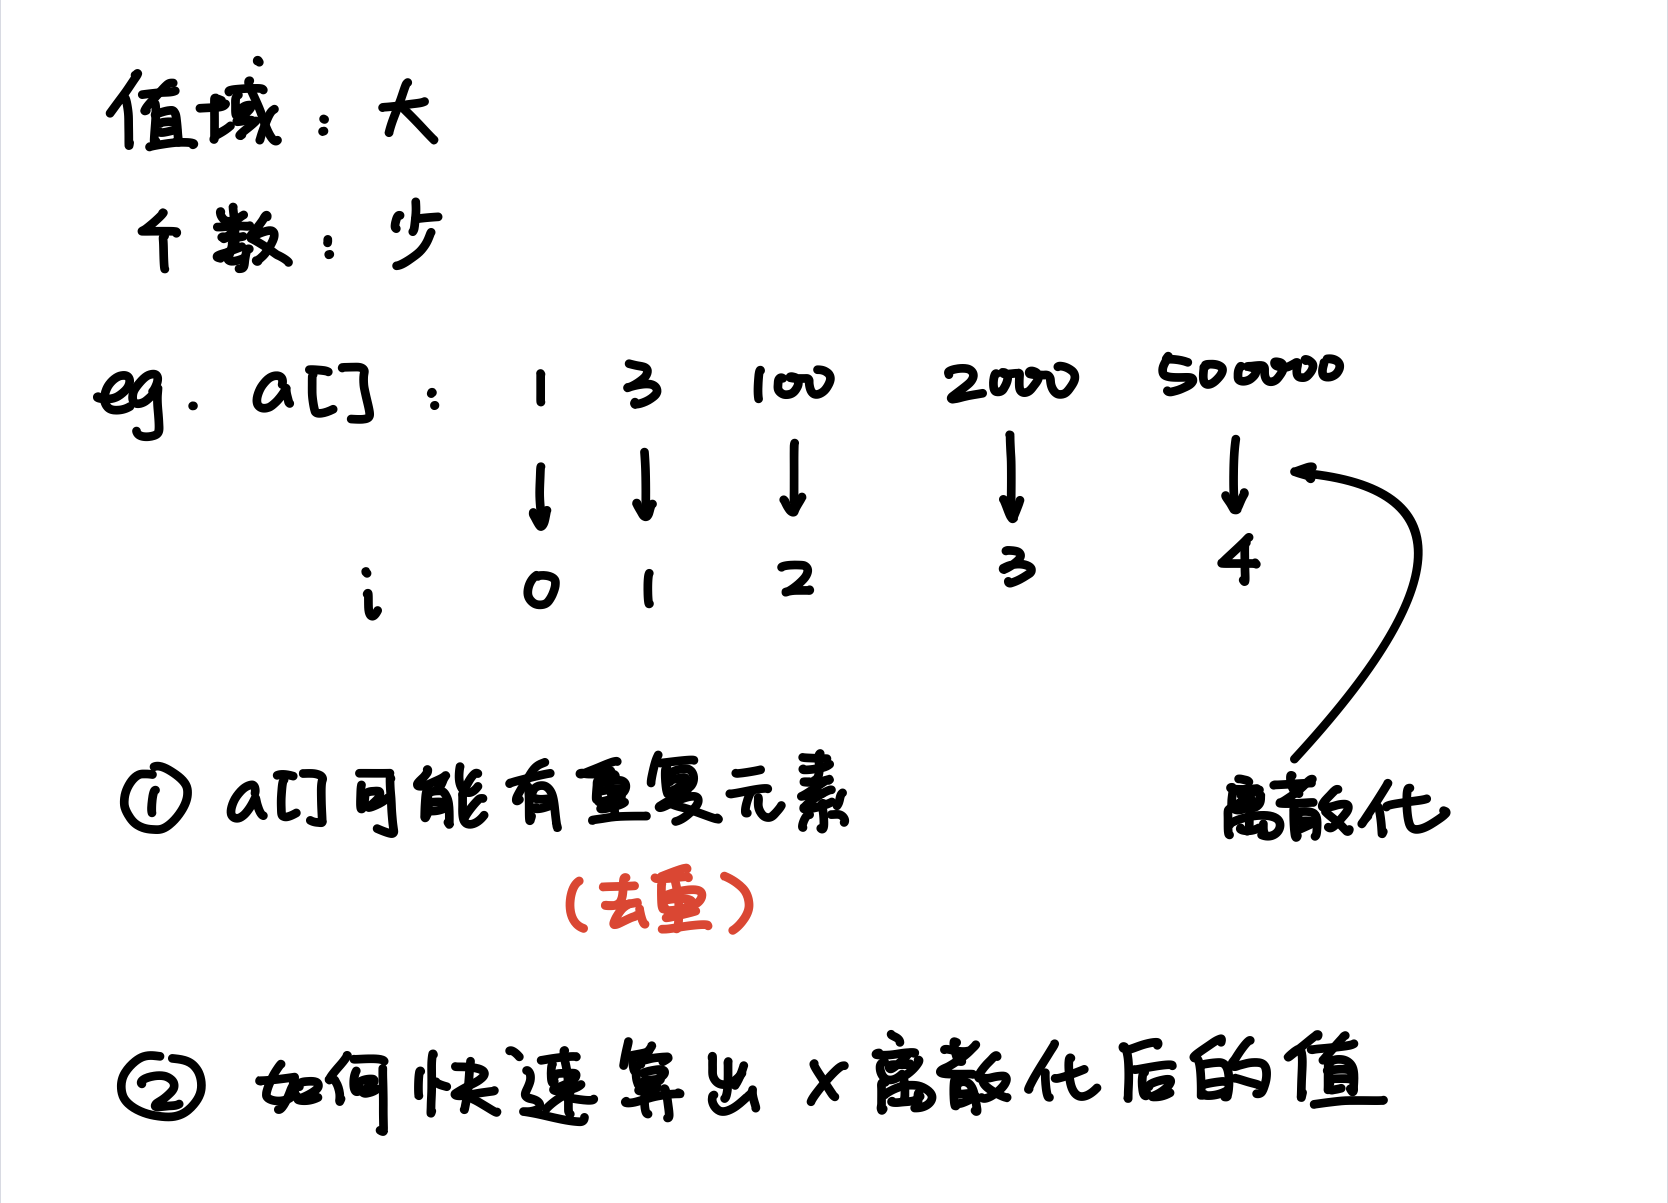 值域：大
个数：少
eg. a[]： 1 3 100 2000 500000
i 0 1 2 3 4
① a[]可能有重复元素
离散化
(去重)
② 如何快速算出 x 离散化后的值